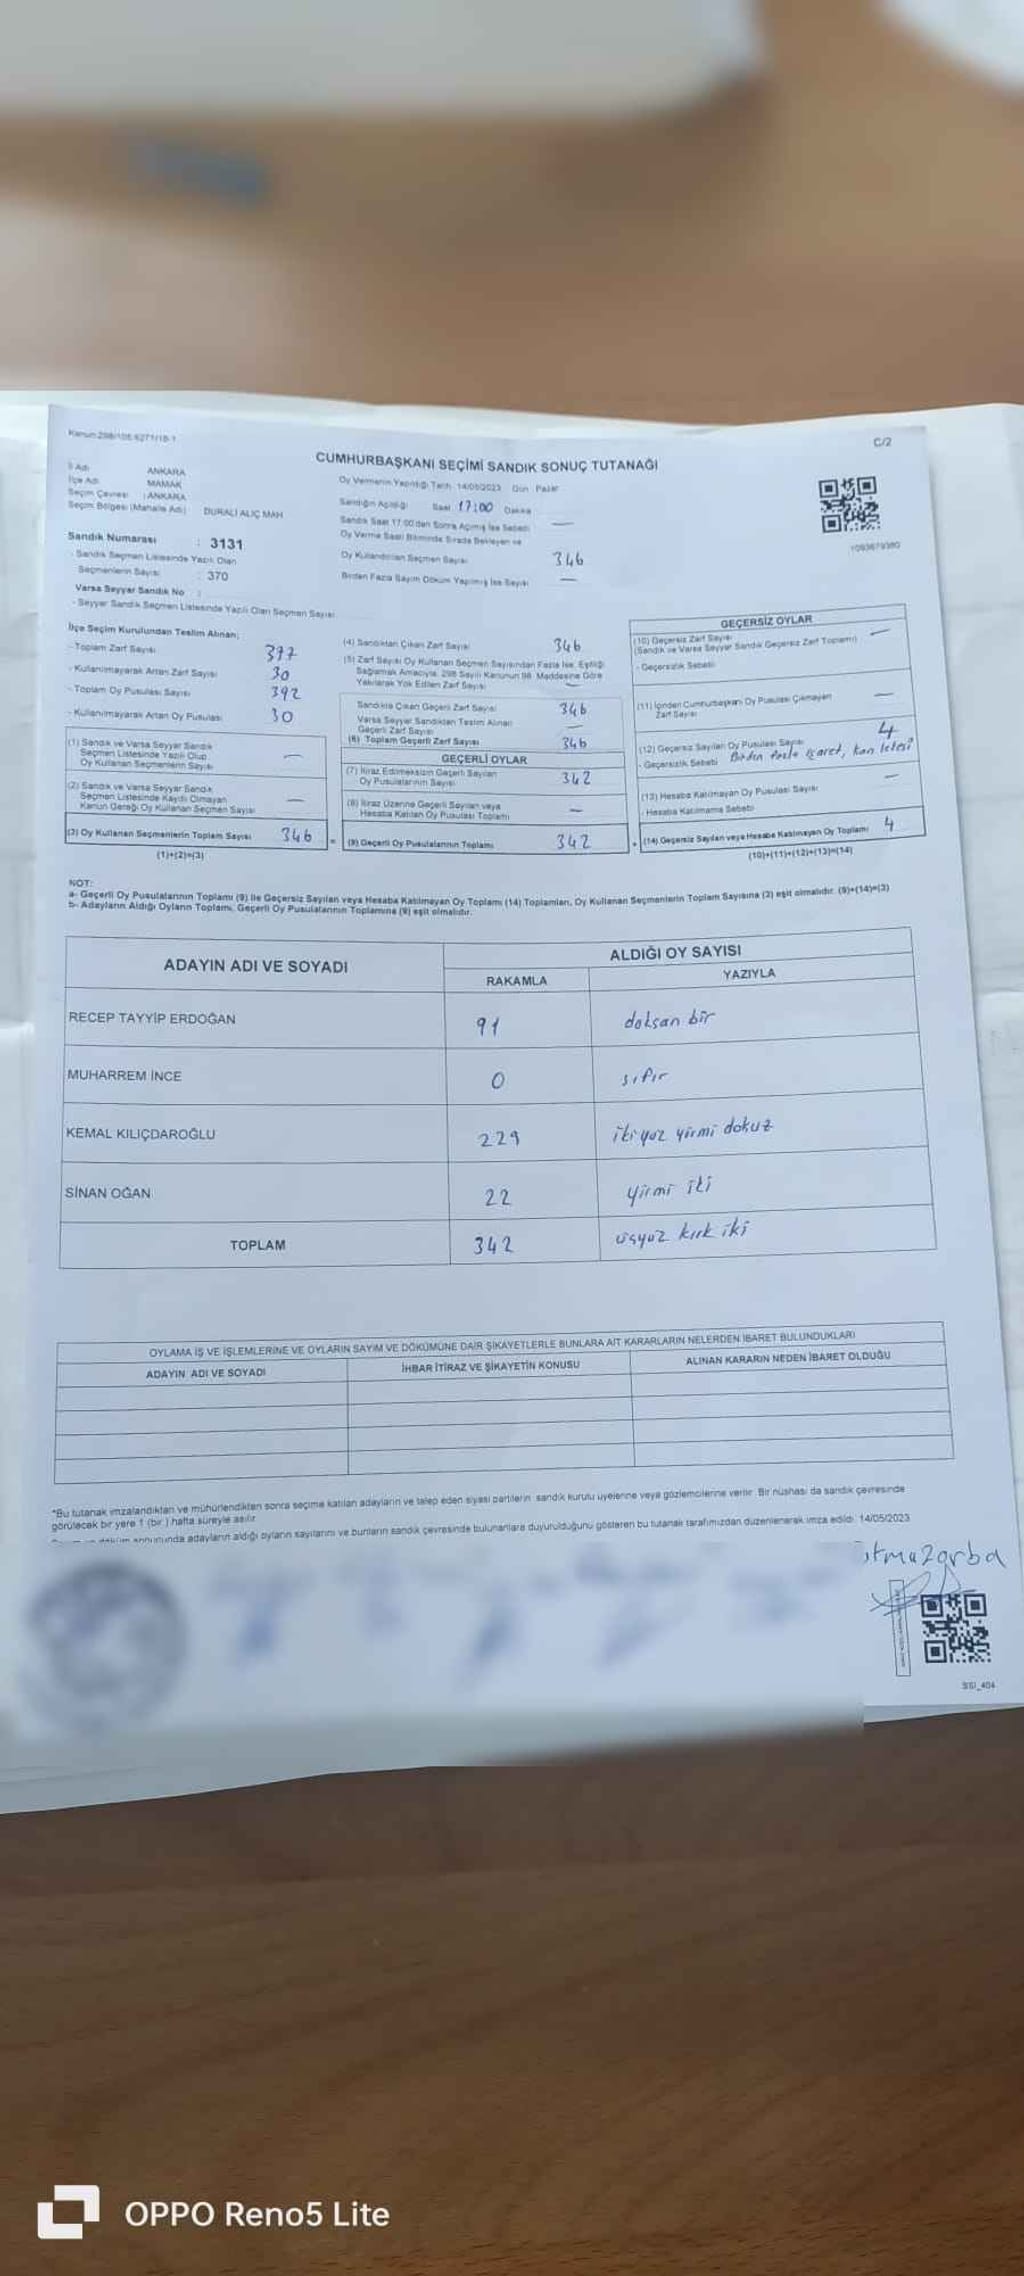 Kanun:298/105 6271/18-1
C/2
CUMHURBAŞKANI SEÇİMİ SANDIK SONUÇ TUTANAĞI
İl Adı ANKARA
İlçe Adı MAMAK
Seçim Çevresi : ANKARA
Seçim Bölgesi (Mahalle Adı) DURALİ ALIÇ MAH
Sandık Numarası : 3131
- Sandık Seçmen Listesinde Yazılı Olan
Seçmenlerin Sayısı : 370
Varsa Seyyar Sandık No :
- Seyyar Sandık Seçmen Listesinde Yazılı Olan Seçmen Sayısı
Oy Vermenin Yapıldığı Tarih 14/05/2023 Gün Pazar
Sandığın Açıldığı Saat 17:00 Dakika
Sandık Saat 17:00'den Sonra Açılmış İse Sebebi —
Oy Verme Saati Bitiminde Sırada Bekleyen ve
Oy Kullandırılan Seçmen Sayısı 346
Birden Fazla Sayım Döküm Yapılmış İse Sayısı —
İlçe Seçim Kurulundan Teslim Alınan;
- Toplam Zarf Sayısı 377
- Kullanılmayarak Artan Zarf Sayısı 30
- Toplam Oy Pusulası Sayısı 392
- Kullanılmayarak Artan Oy Pusulası 30
(1) Sandık ve Varsa Seyyar Sandık
Seçmen Listesinde Yazılı Olup
Oy Kullanan Seçmenlerin Sayısı —
(2) Sandık ve Varsa Seyyar Sandık
Seçmen Listesinde Kayıtlı Olmayan
Kanun Gereği Oy Kullanan Seçmen Sayısı —
(3) Oy Kullanan Seçmenlerin Toplam Sayısı 346 =
(1)+(2)=(3)
(4) Sandıktan Çıkan Zarf Sayısı 346
(5) Zarf Sayısı Oy Kullanan Seçmen Sayısından Fazla İse, Eşitliği
Sağlamak Amacıyla, 298 Sayılı Kanunun 98. Maddesine Göre
Yakılarak Yok Edilen Zarf Sayısı —
Sandıkta Çıkan Geçerli Zarf Sayısı 346
Varsa Seyyar Sandıktan Teslim Alınan
Geçerli Zarf Sayısı —
(6) Toplam Geçerli Zarf Sayısı 346
GEÇERLİ OYLAR
(7) İtiraz Edilmeksizin Geçerli Sayılan
Oy Pusulalarının Sayısı 342
(8) İtiraz Üzerine Geçerli Sayılan veya
Hesaba Katılan Oy Pusulası Toplamı —
(9) Geçerli Oy Pusulalarının Toplamı 342 +
GEÇERSİZ OYLAR
(10) Geçersiz Zarf Sayısı
(Sandık ve Varsa Seyyar Sandık Geçersiz Zarf Toplamı) —
- Geçersizlik Sebebi
(11) İçinden Cumhurbaşkanı Oy Pusulası Çıkmayan
Zarf Sayısı —
(12) Geçersiz Sayılan Oy Pusulası Sayısı 4
- Geçersizlik Sebebi Birden fazla işaret, kan lekesi
(13) Hesaba Katılmayan Oy Pusulası Sayısı —
- Hesaba Katılmama Sebebi
(14) Geçersiz Sayılan veya Hesaba Katılmayan Oy Toplamı 4
(10)+(11)+(12)+(13)=(14)
NOT:
a- Geçerli Oy Pusulalarının Toplamı (9) ile Geçersiz Sayılan veya Hesaba Katılmayan Oy Toplamı (14) Toplamları, Oy Kullanan Seçmenlerin Toplam Sayısına (3) eşit olmalıdır. (9)+(14)=(3)
b- Adayların Aldığı Oyların Toplamı, Geçerli Oy Pusulalarının Toplamına (9) eşit olmalıdır.
ADAYIN ADI VE SOYADI ALDIĞI OY SAYISI
RAKAMLA YAZIYLA
RECEP TAYYİP ERDOĞAN 91 doksan bir
MUHARREM İNCE 0 sıfır
KEMAL KILIÇDAROĞLU 229 ikiyüz yirmi dokuz
SİNAN OĞAN 22 yirmi iki
TOPLAM 342 üçyüz kırk iki
OYLAMA İŞ VE İŞLEMLERİNE VE OYLARIN SAYIM VE DÖKÜMÜNE DAİR ŞİKAYETLERLE BUNLARA AİT KARARLARIN NELERDEN İBARET BULUNDUKLARI
ADAYIN ADI VE SOYADI İHBAR İTİRAZ VE ŞİKAYETİN KONUSU ALINAN KARARIN NEDEN İBARET OLDUĞU
*Bu tutanak imzalandıktan ve mühürlendikten sonra seçime katılan adayların ve talep eden siyasi partilerin sandık kurulu üyelerine veya gözlemcilerine verilir. Bir nüshası da sandık çevresinde
görülecek bir yere 1 (bir ) hafta süreyle asılır.
adayların aldığı oyların sayılarını ve bunların sandık çevresinde bulunanlara duyurulduğunu gösteren bu tutanak tarafımızdan düzenlenerek imza edildi. 14/05/2023
SSI_404
OPPO Reno5 Lite